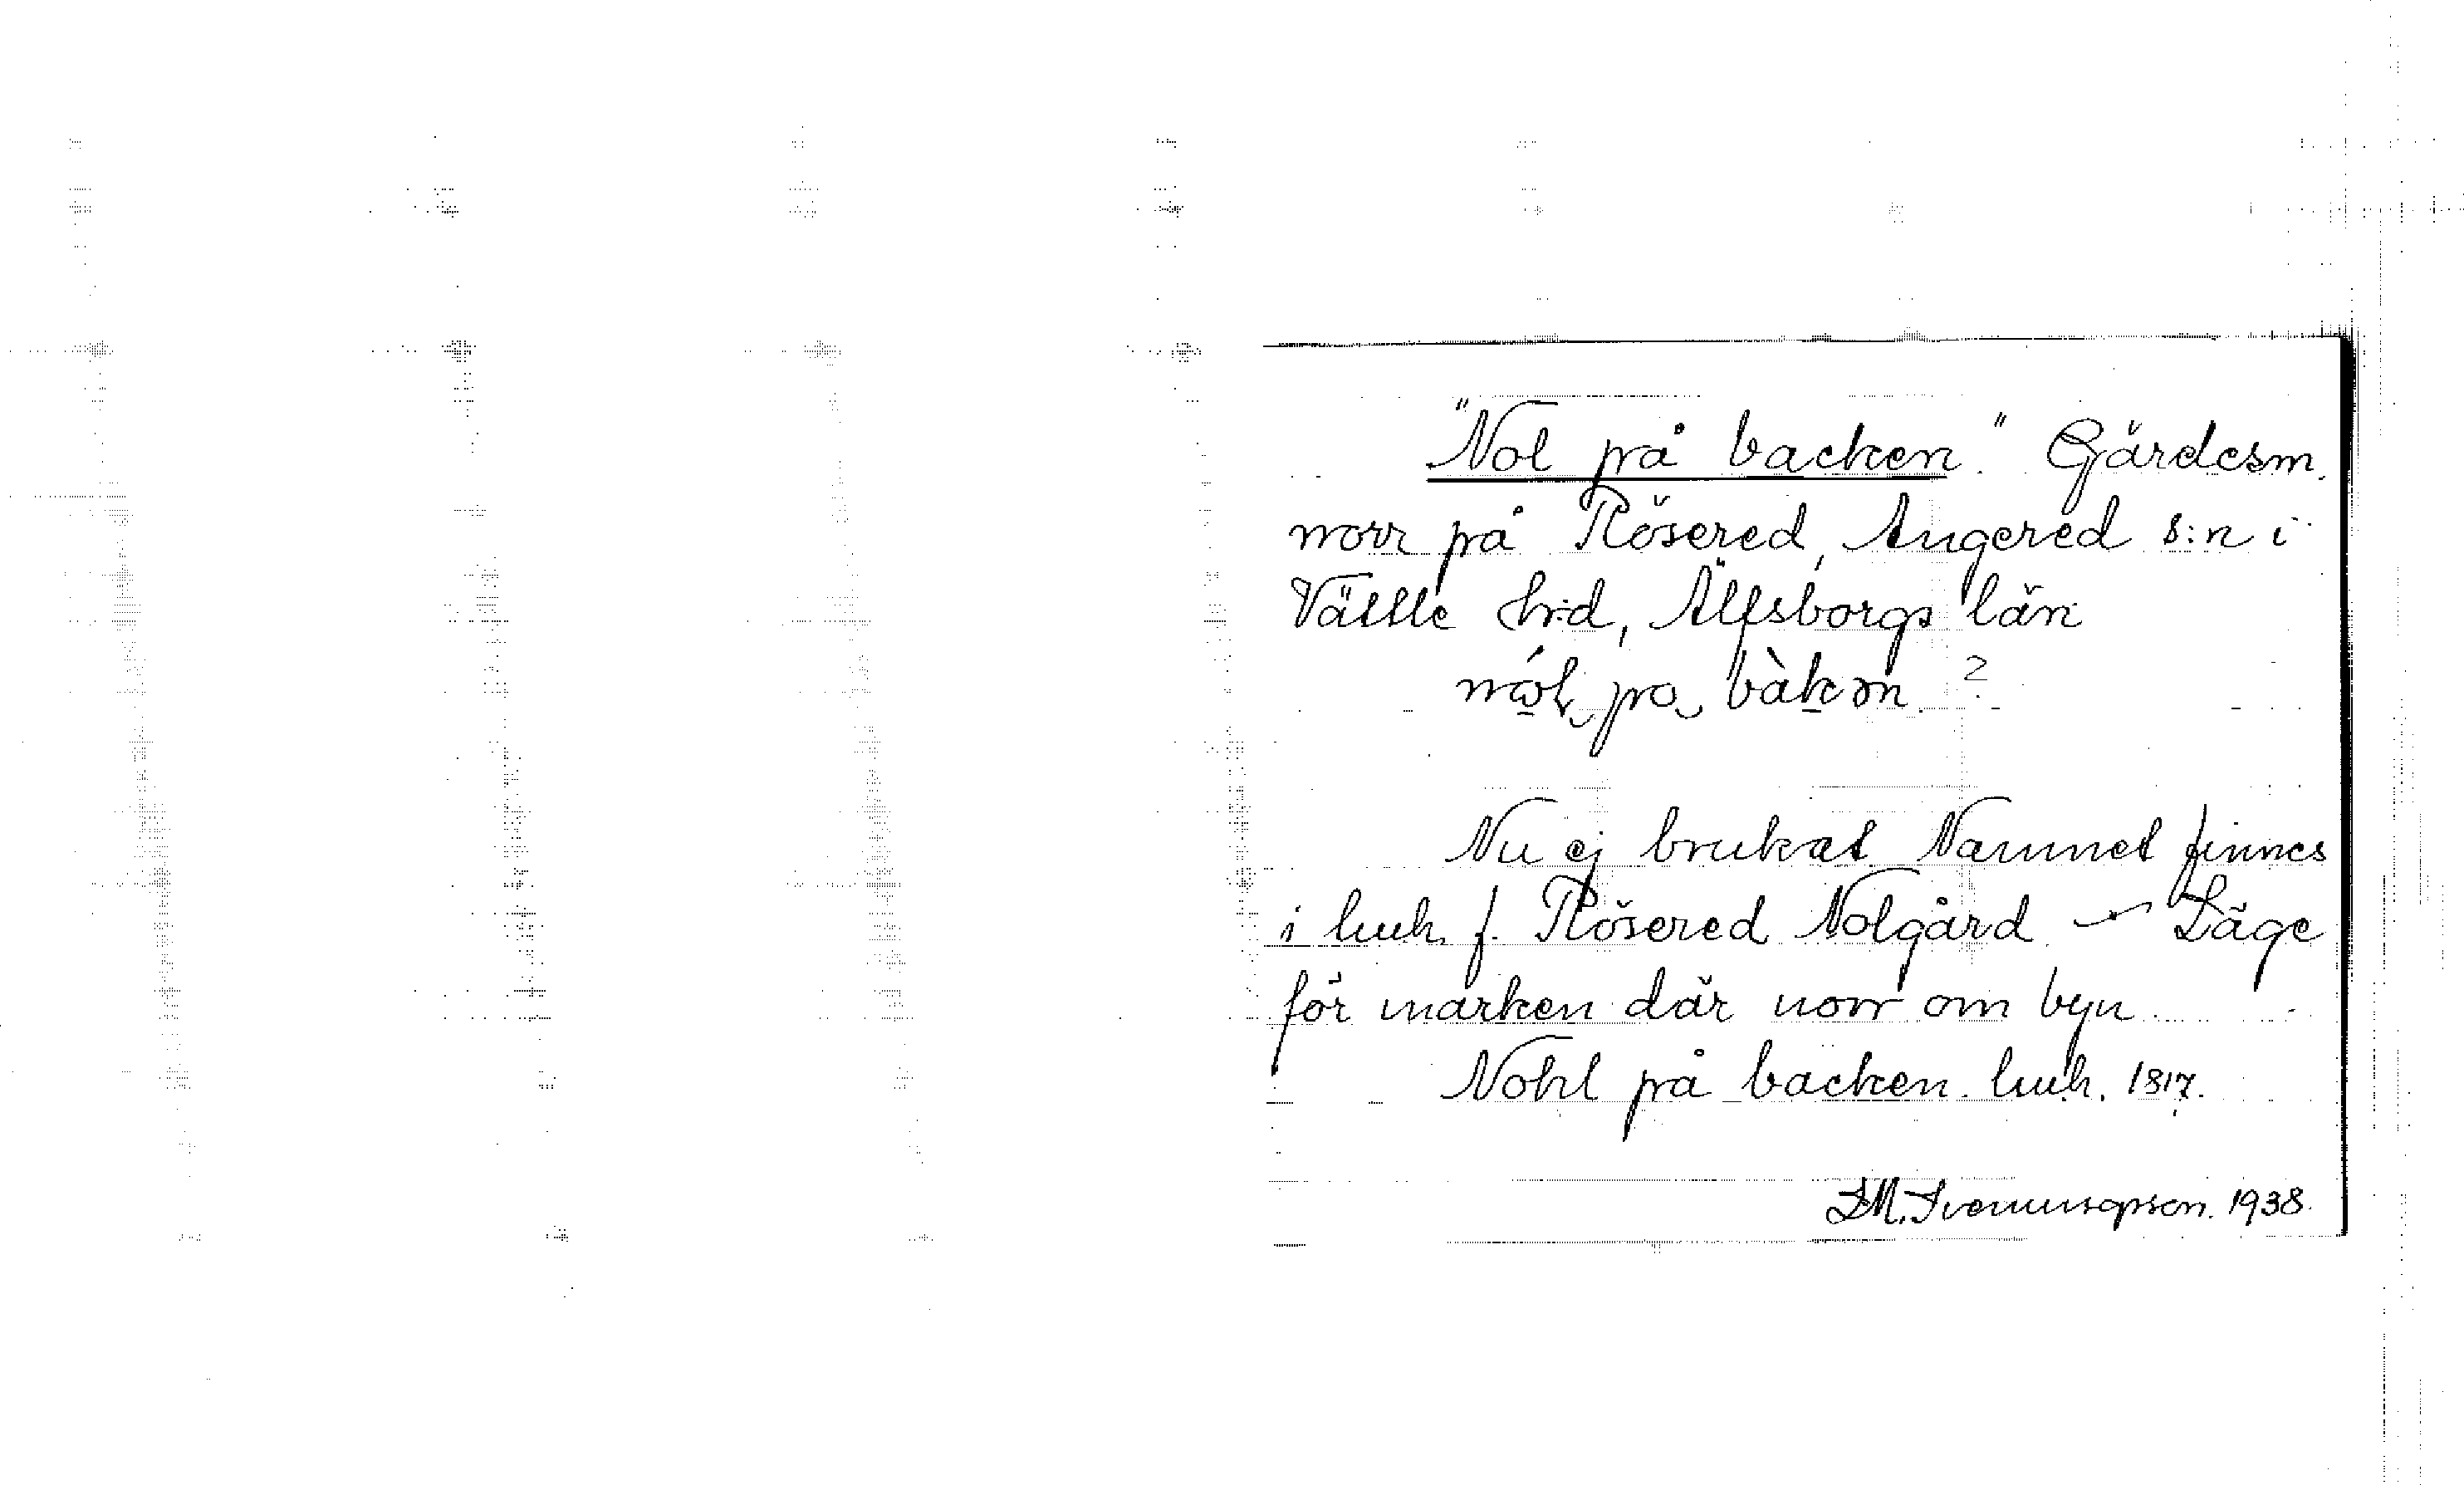 "Nol på backen." Gärdesm.
norr på Rösered, Angered s:n i
Vättle hrd, Älfsborgs län
på bàkən ?
Nu ej brukat. Namnet finnes
i luh. f. Rösered Nolgård - Läge
för marken där norr om byn.
Nohl på backen luh. 1817.
1938.